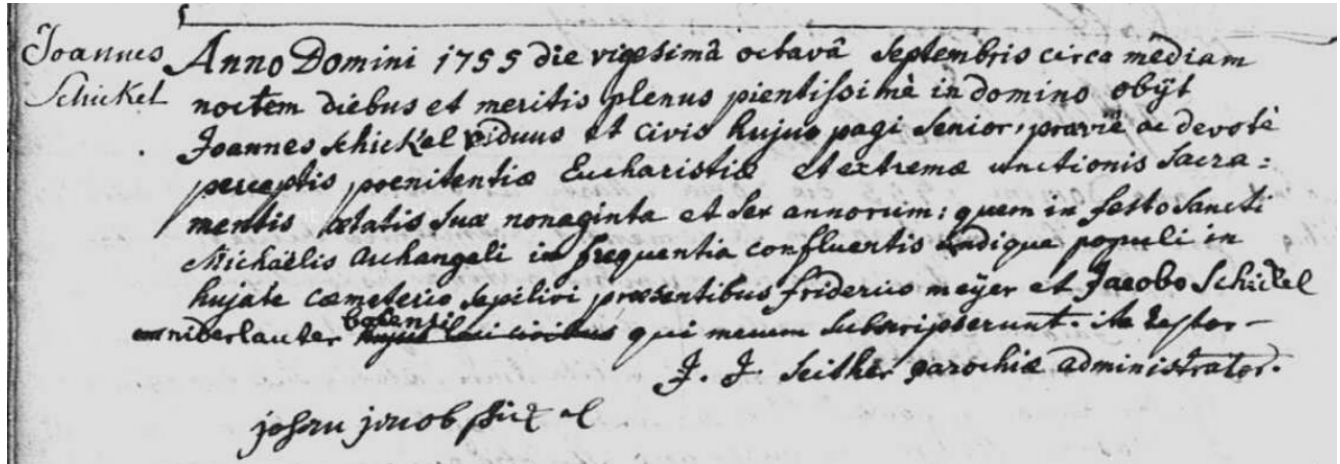 Joannes
Schickel
Anno Domini 1755 die vigesimâ octavâ Septembris circa mediam
noctem diebus et meritis plenus pientissimè in domino obÿt
Joannes schickel viduus et civis hujus pagi senior, praeviè ac devotè
perceptis poenitentiæ Eucharistiæ et extremæ unctionis Sacra=
mentis ætatis suæ nonaginta et sex annorum: quem in festo sancti
Michaëlis Archangeli in frequentia confluentis undique populi in
hujate cœmeterio sepelivi præsentibus friderico meÿer et Jacobo Schickel
niderlauterbacensi
hujus loci civibus qui mecum subscripserunt. ita testor
J. J. Seither parochiæ administrator.
johan jacob